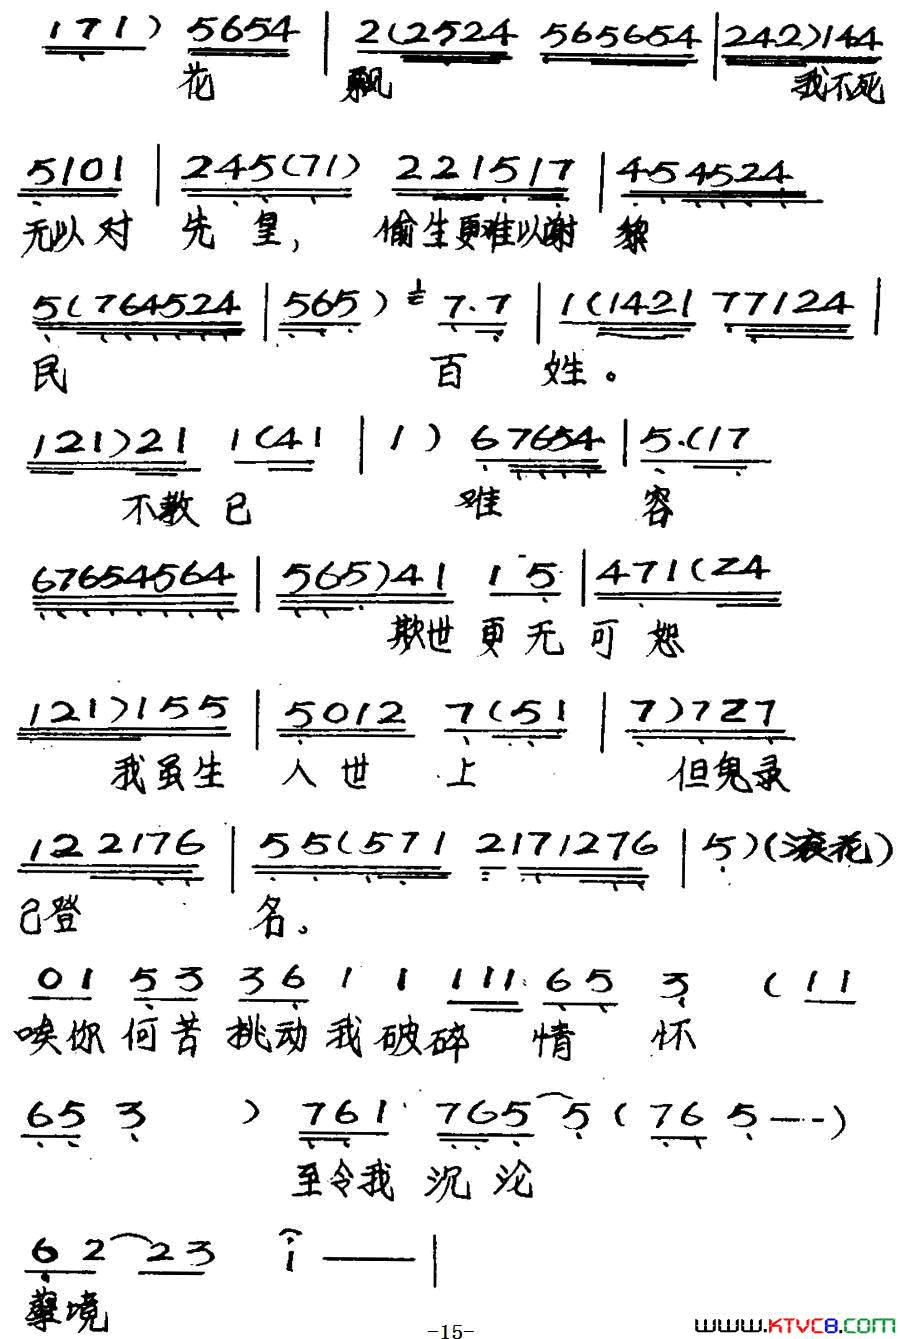 171) 5654 | 2(2524 565654 | 242)144
花 飘 我不死
5101 | 245(71) 221517 | 454524
无以对 先皇, 偷生更难以谢 黎
5(764524 | 565) 7.7 | 1(1421 77124 |
民 百 姓。
121)21 1(41 | 1) 67654 | 5.(17
不教已 难 容
67654564 | 565)41 1 5 | 471(24
欺世更无可恕
121)155 | 5012 7(51 | 7)727
我虽生 人世 上 但鬼录
122176 | 55(571 2171276 | 5)(滚花)
已登 名。
01 53 36 1 1 111 65 3 (11
唉你何苦挑动我破碎 情 怀
65 3 ) 761 765 5(76 5---)
至令我 沉沦
62 23 i —— |
孽境
-15-
WWW.KTVC8.COM